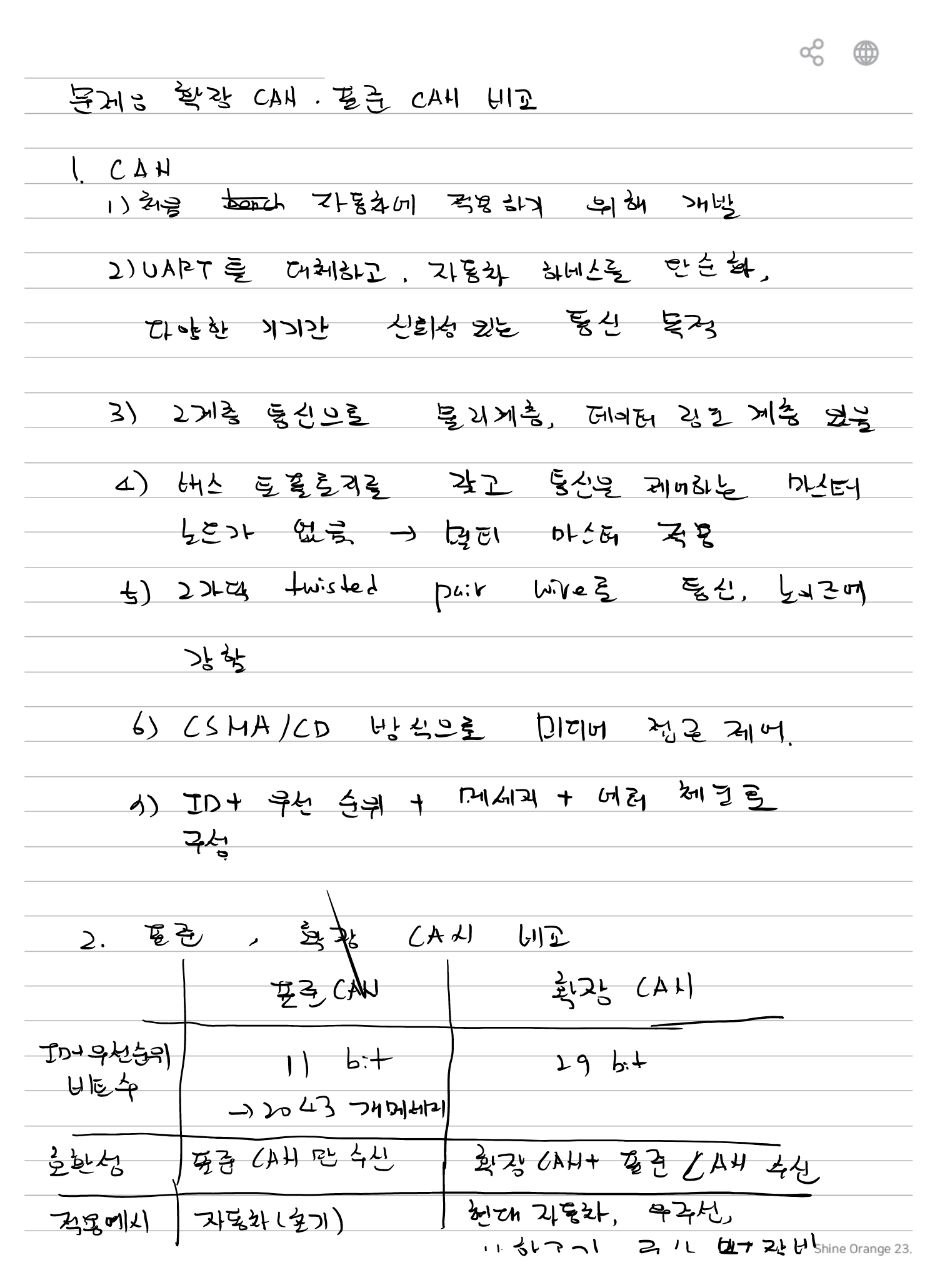 문제) 확장 CAN · 표준 CAN 비교
1. CAN
1) 처음 자동차에 적용하기 위해 개발
2) UART를 대체하고, 자동차 하네스를 단순화,
다양한 기기간 신뢰성 있는 통신 목적
3) 2계층 통신으로 물리계층, 데이터 링크 계층 있음
4) 버스 토폴로지를 갖고 통신을 제어하는 마스터
노드가 없음 → 멀티 마스터 적용
5) 2가닥 twisted pair wire로 통신, 노이즈에
강함
6) CSMA/CD 방식으로 미디어 접근 제어.
7) ID + 우선 순위 + 메세지 + 에러 체크로
구성
2. 표준, 확장 CAN 비교
표준 CAN 확장 CAN
ID+우선순위 11 bit 29 bit
비트수
→ 2043 개메세지
호환성 표준 CAN 만 수신 확장 CAN + 표준 CAN 수신
적용예시 자동차(초기) 현대 자동차, 우주선,
Shine Orange 23.